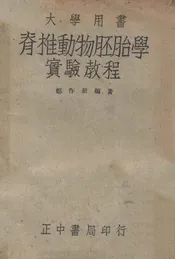 大學用書
脊椎動物胚胎學
實驗教程
鄭作新編著
正中書局印行